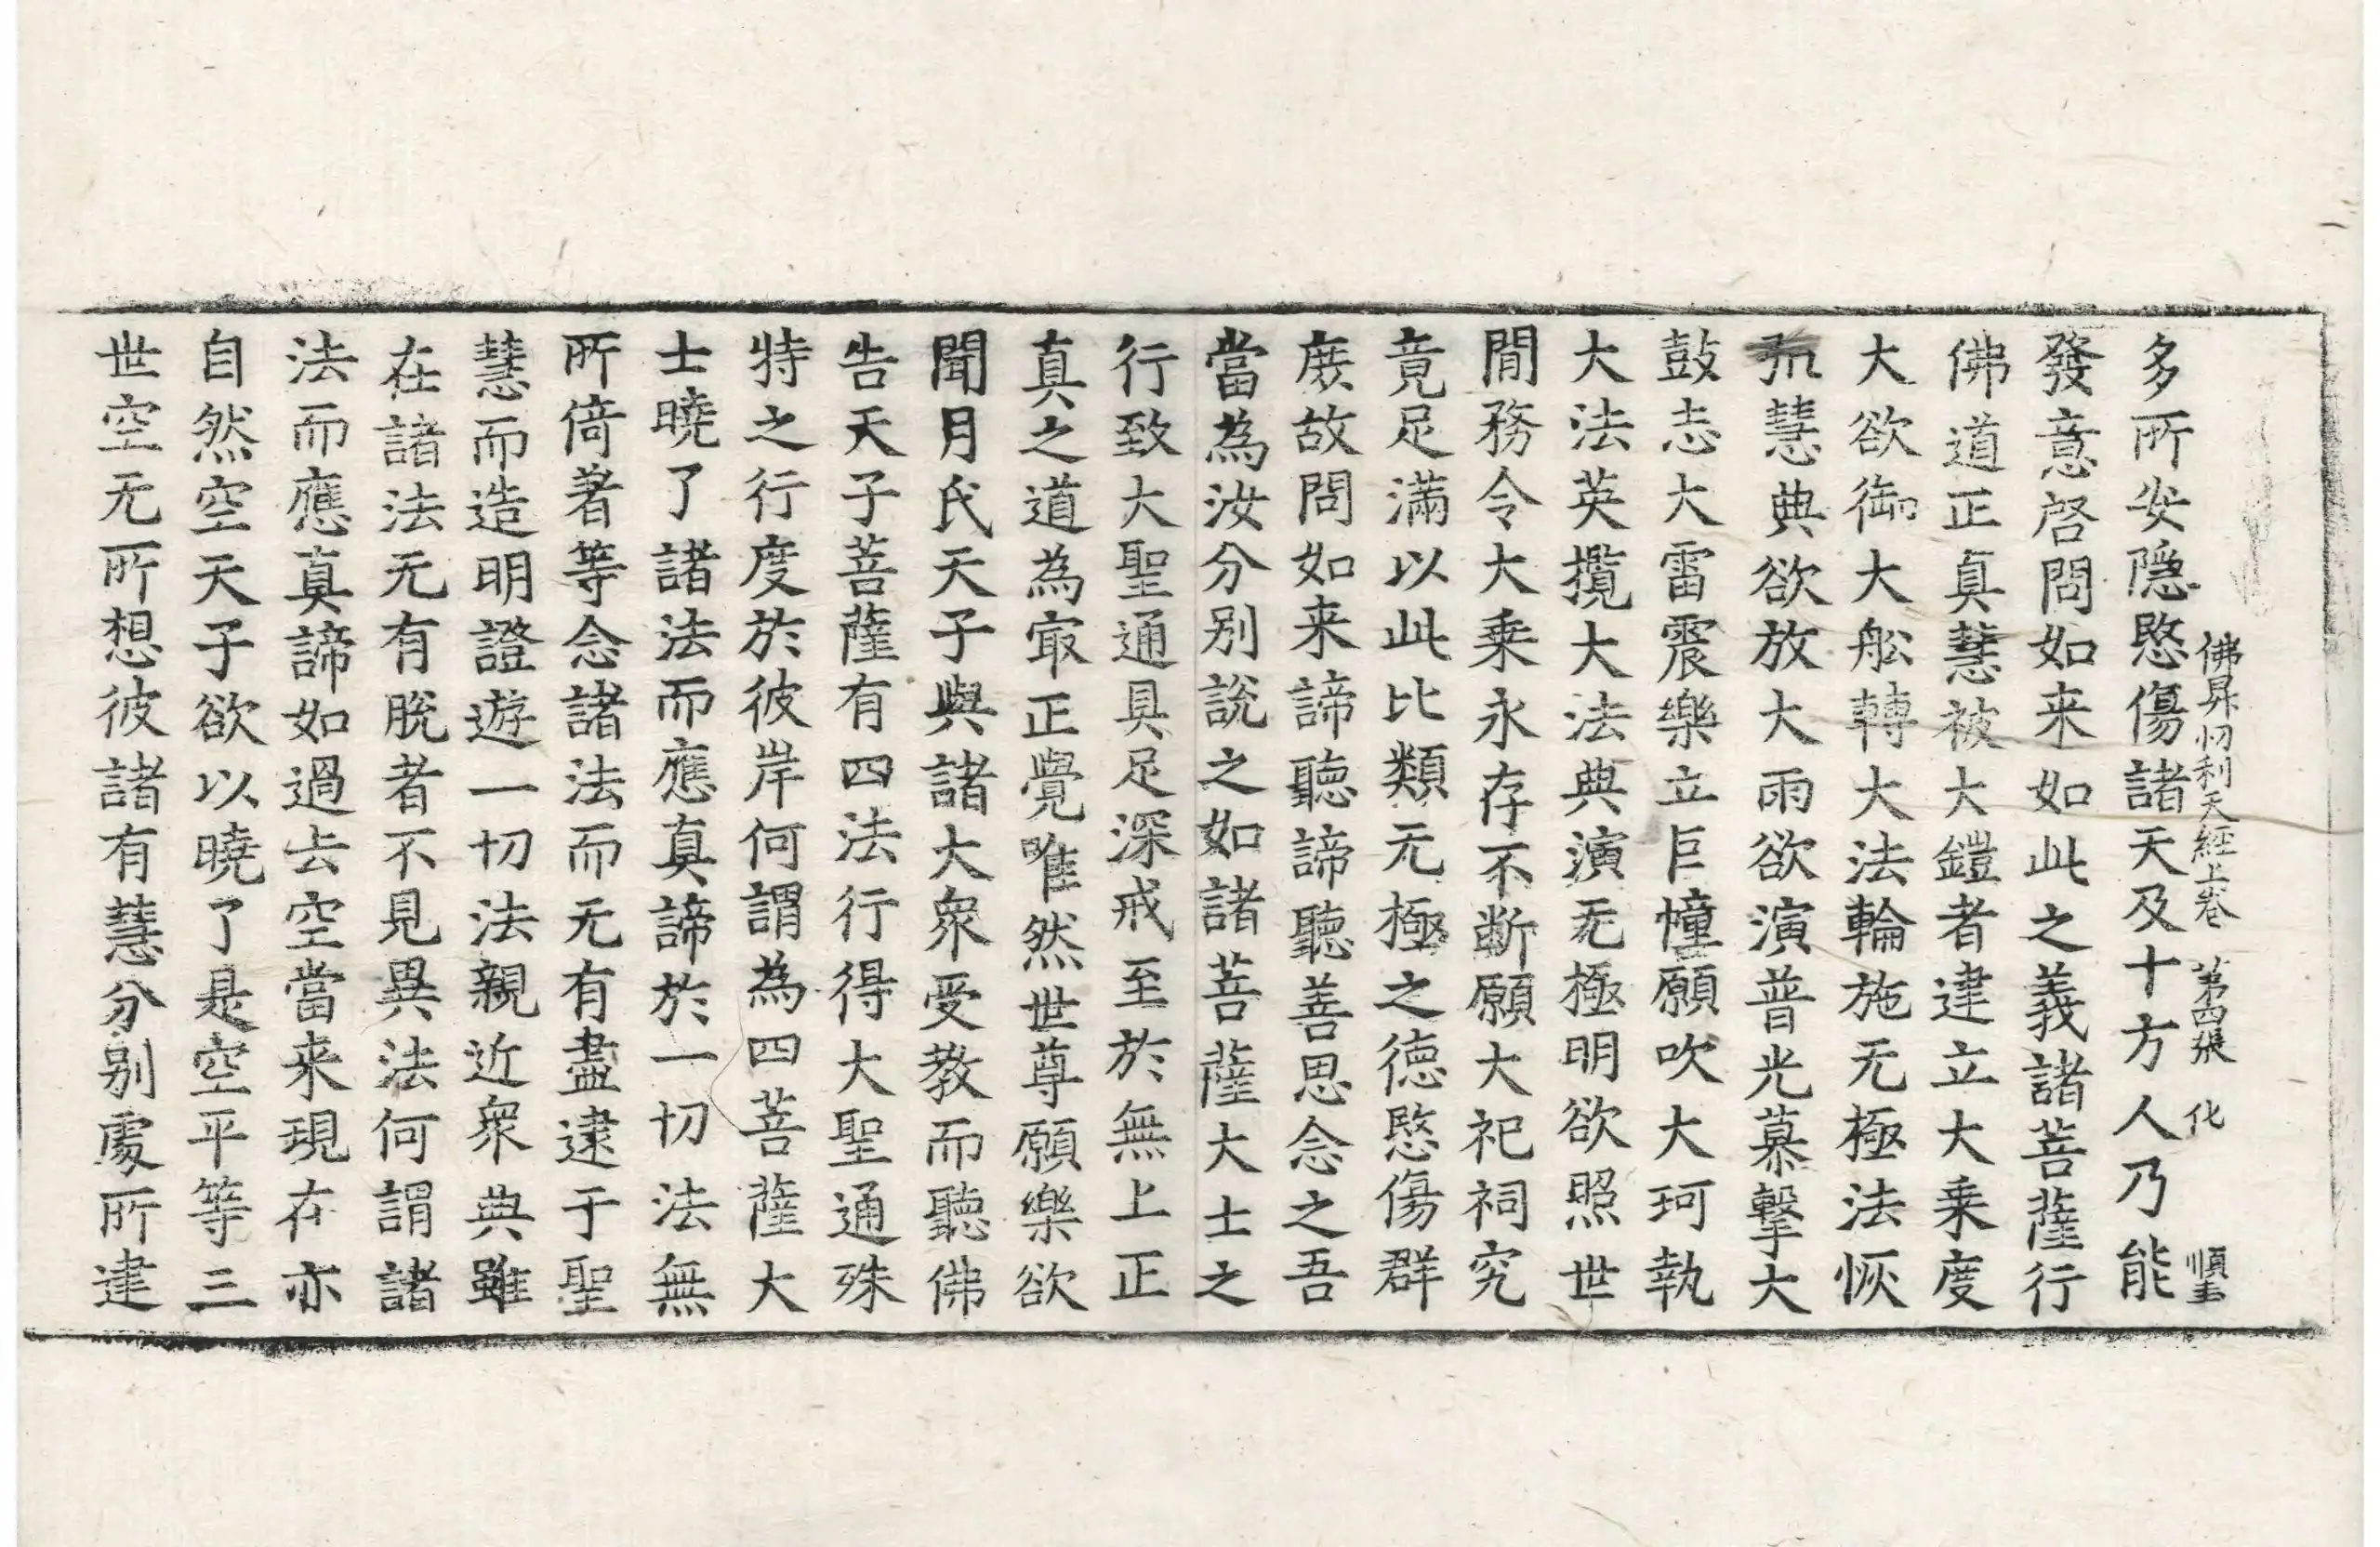 佛昇忉利天經上卷 第四張 化 順圭
多所安隱愍傷諸天及十方人乃能
發意啓問如来如此之義諸菩薩行
佛道正真慧被大鎧者建立大乗度
大欲御大舩轉大法輪施无極法恢
慧典欲放大雨欲演普光慕擊大
鼓志大雷震樂立巨幢願吹大珂執
大法英攬大法典演无極明欲照世
閒務令大乗永存不断願大祀祠究
竟足滿以此比類无極之德愍傷群
庶故問如来諦聽諦聽善思念之吾
當為汝分别說之如諸菩薩大士之
行致大聖通具足深戒至於無上正
真之道為冣正覺唯然世尊願樂欲
聞月氏天子與諸大衆受教而聽佛
告天子菩薩有四法行得大聖通殊
特之行度於彼岸何謂為四菩薩大
士曉了諸法而應真諦於一切法無
所倚著等念諸法而无有盡逮于聖
慧而造明證遊一切法親近衆典雖
在諸法无有脫者不見異法何謂諸
法而應真諦如過去空當来現在亦
自然空天子欲以曉了是空平等三
世空无所想彼諸有慧分别處所建